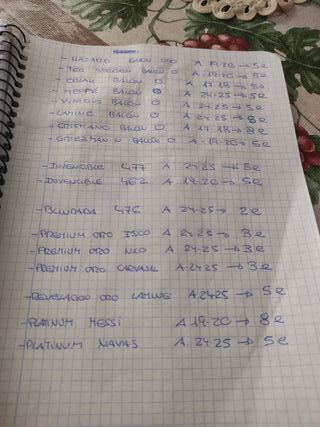 - HAZARD BALON ORO A 19-20 → 5€
- TER STEGEN BALON O A 19-20 → 5€
- OBLAK BALON O A 17-18 → 8€
- MBAPPE BALON O A 24-25 → 5€
- VINICIUS BALON O A 24-25 → 5€
- LAMINE BALON O A 24-25 → 8€
- CRISTIANO BALON O A 17-18 → 8€
- GRIEZMANN BALON O A -19-20 → 5€
- INVENCIBLE 477 A 24-25 → 5€
- INVENCIBLE 462 A 19-20 → 5€
- BLINDADA 476 A 24-25 → 2€
- PREMIUM ORO ISCO A 24-25 → 3€
- PREMIUM ORO NICO A 24-25 → 3€
- PREMIUM ORO CARVAJAL A 24-25 → 3€
- REVELACION ORO LAMINE A 24-25 → 5€
- PLATINUM MESSI A 19-20 → 8€
- PLATINUM NAVAS A 24-25 → 5€